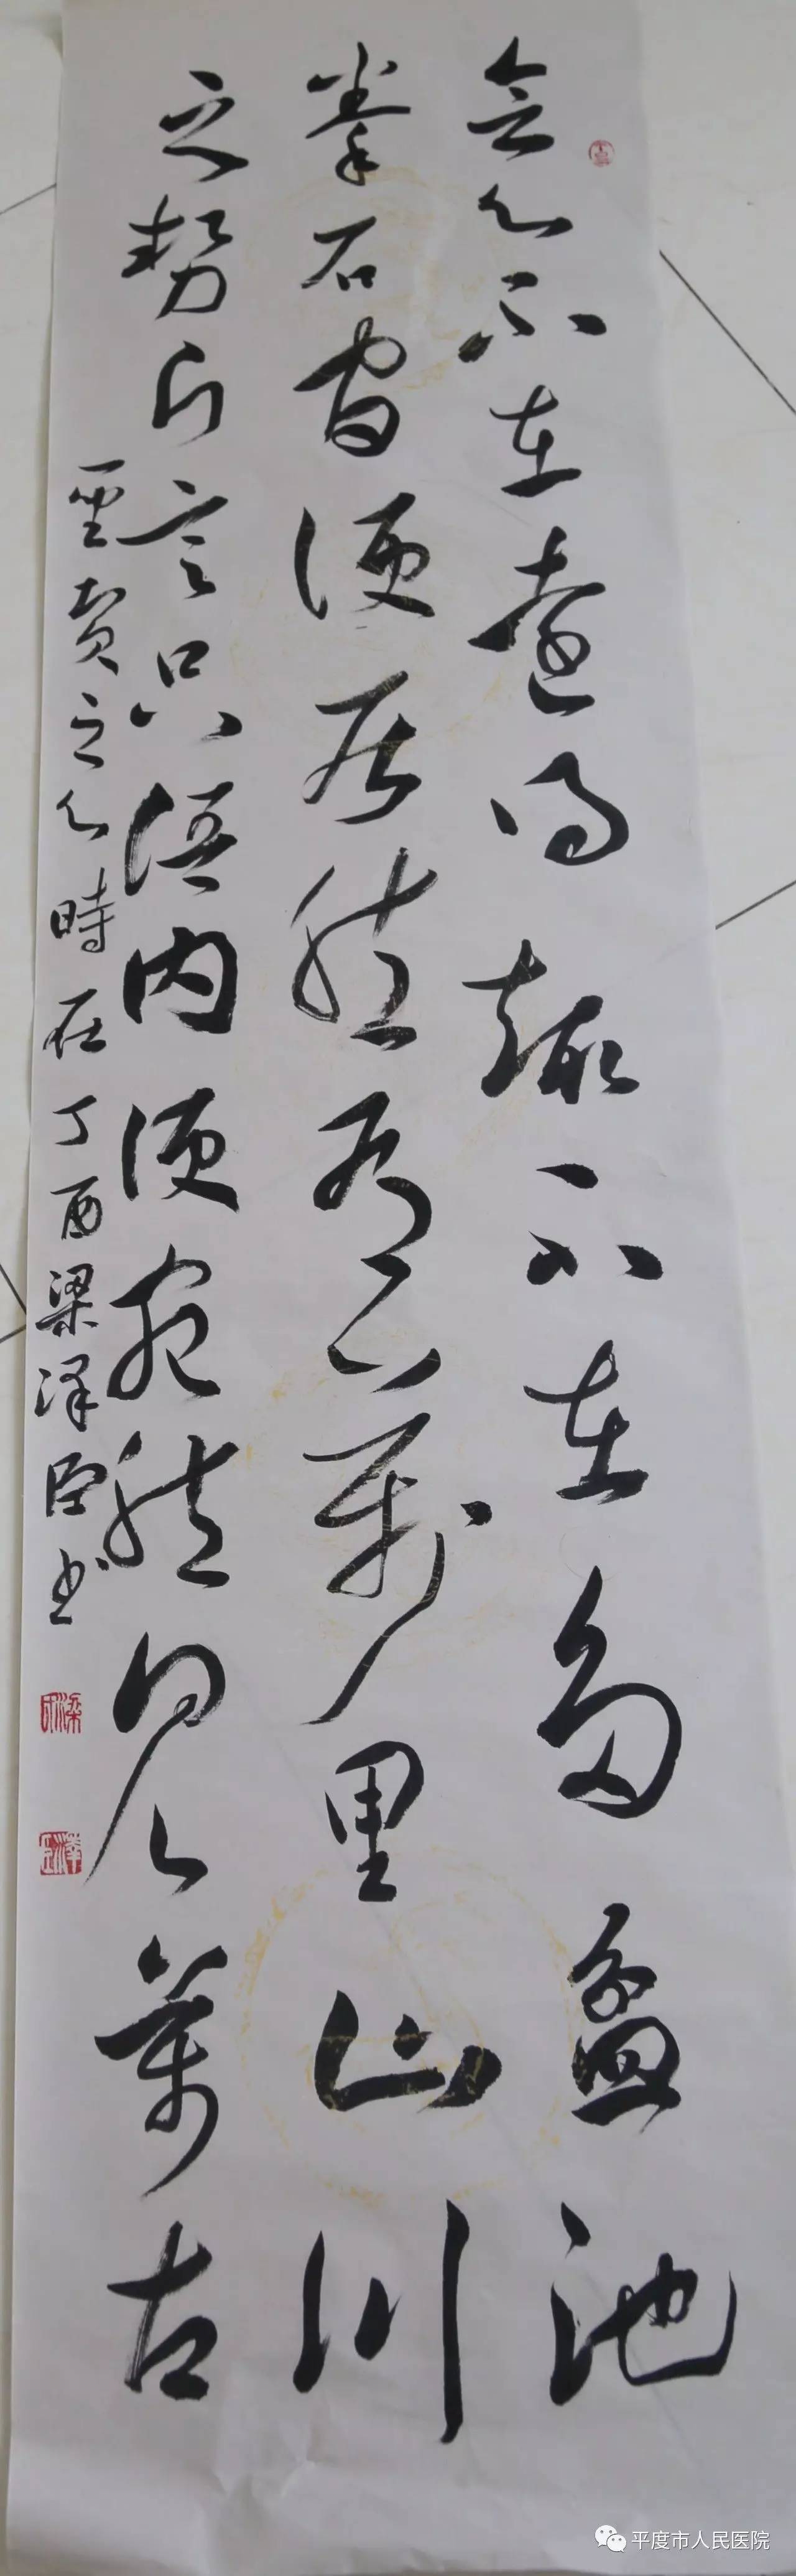 會心不在遠得趣不在多盆池
拳石間便居然有萬里山川
之勢片言只語内便宛然見萬古
聖賢之心時在丁酉梁澤臣书
平度市人民医院